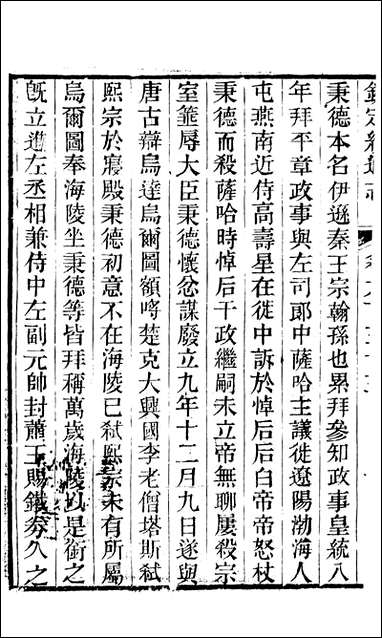 欽定續通志
秉德本名伊遜秦王宗翰孫也累拜參知政事皇統八
年拜平章政事與左司郎中薩哈主議徙遼陽渤海人
屯燕南近侍高壽星在徙中訴於悼后后白帝帝怒杖
秉德而殺薩哈時悼后干政繼嗣未立帝無聊屢殺宗
室箠辱大臣秉德懷忿謀廢立九年十二月九日遂與
唐古辯烏達烏爾圖額哷楚克大興國李老僧塔斯弒
熙宗於寢殿秉德初意不在海陵已弒熙宗未有所屬
烏爾圖奉海陵坐秉德等皆拜稱萬歲海陵以是銜之
旣立進左丞相兼侍中左副元帥封蕭王賜鐵券久之